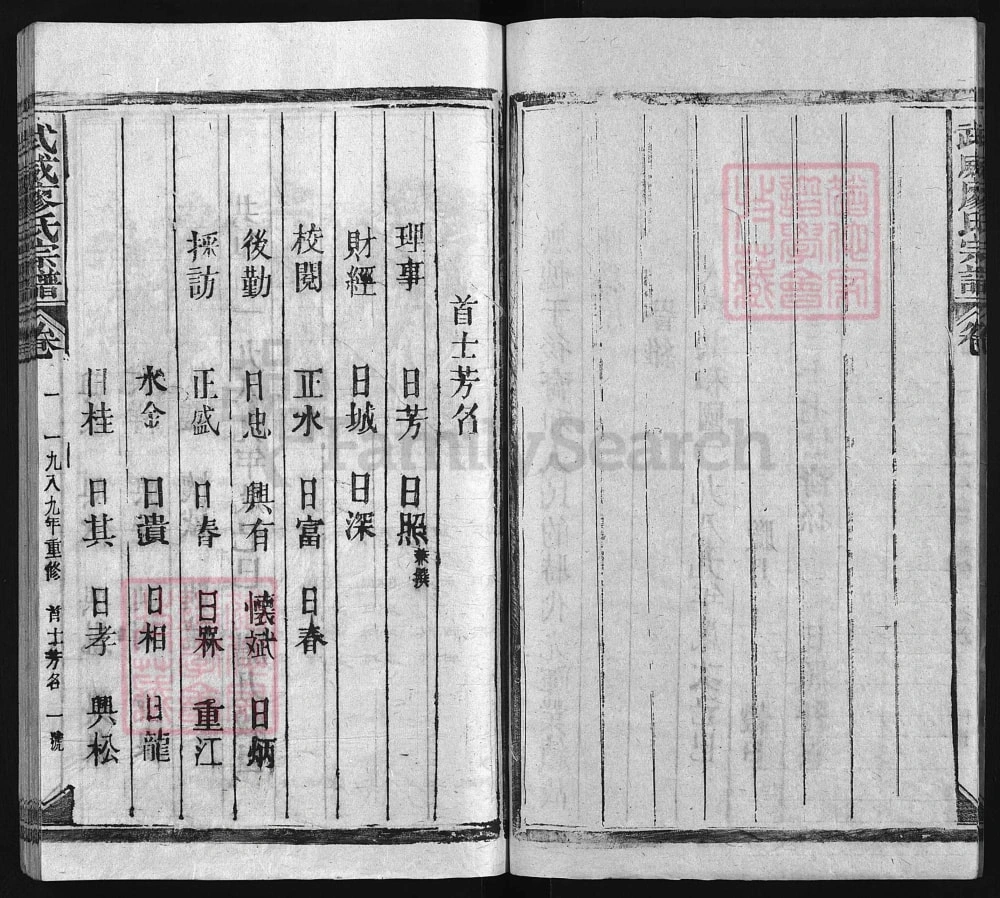 武威廖氏宗譜 卷
首士芳名
理事 日芳 日照 兼撰
財經 日城 日深
校閱 正水 日富 日春
後勤 日忠 興有 懷斌 日炳
採訪 正盛 日春 日霖 重江
水金 日貴 日相 日龍
日桂 日其 日孝 興松
武威廖氏宗譜 卷一 一九八九年重修 首士芳名 一號
FamilySearch